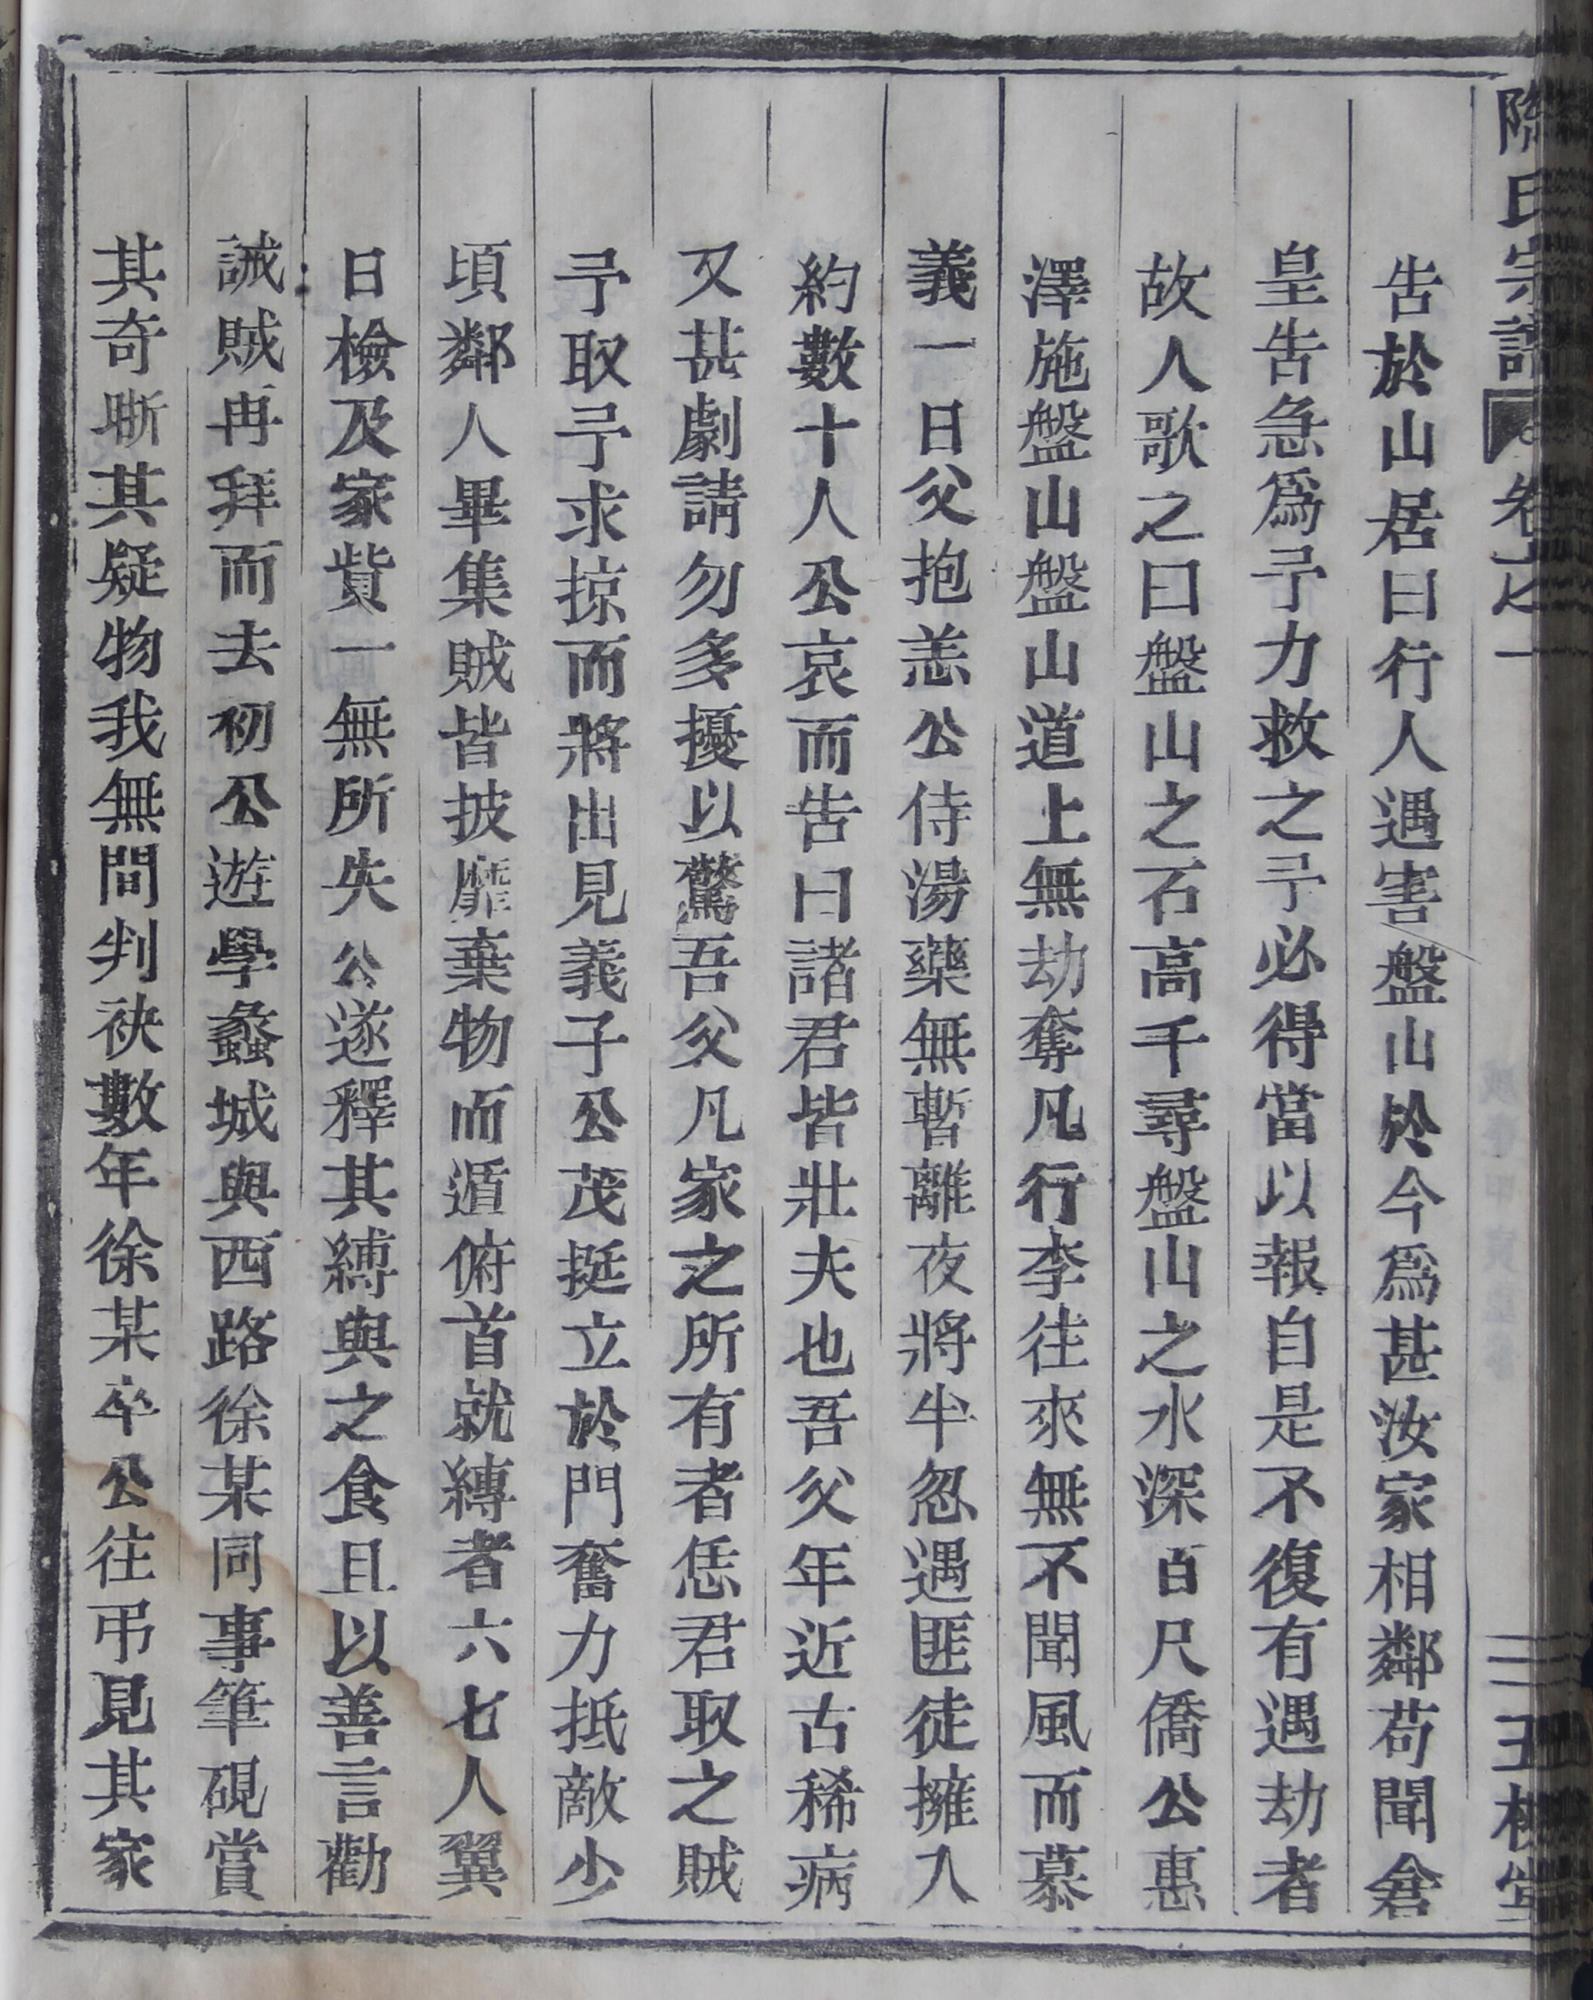 氏宗譜 卷之一
告於山居曰行人遇害盤山於今爲甚汝家相鄰苟聞倉
皇告急爲予力救之予必得當以報自是不復有遇劫者
故人歌之曰盤山之石高千尋盤山之水深百尺僑公惠
澤施盤山盤山道上無劫奪凡行李往來無不聞風而慕
義一日父抱恙公侍湯藥無暫離夜將半忽遇匪徒擁入
約數十人公哀而告曰諸君皆壯夫也吾父年近古稀病
又甚劇請勿多擾以驚吾父凡家之所有者恁君取之賊
予取予求掠而將出見義子公茂挺立於門奮力抵敵少
頃鄰人畢集賊皆披靡棄物而遁俯首就縛者六七人翼
日檢及家貲一無所失公遂釋其縛與之食且以善言勸
誡賊再拜而去初公遊學蠡城與西路徐某同事筆硯賞
其奇晰其疑物我無間判袂數年徐某卒公往弔見其家